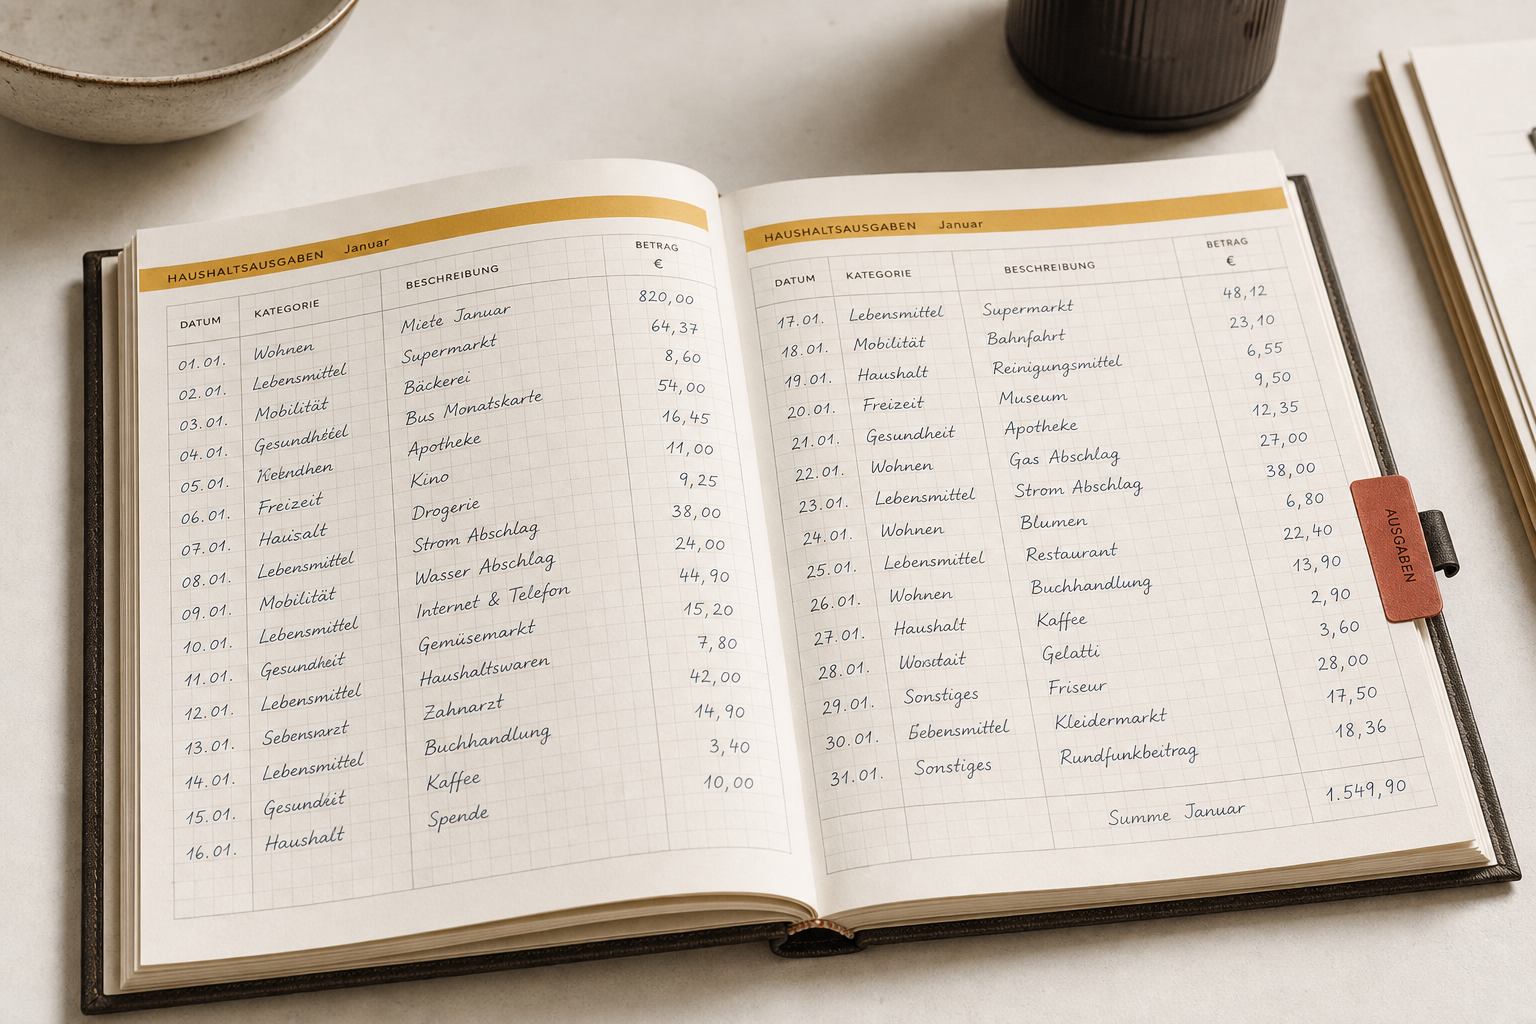 HAUSHALTSAUSGABEN Januar
DATUM KATEGORIE BESCHREIBUNG BETRAG €
01.01. Wohnen Miete Januar 820,00
02.01. Lebensmittel Supermarkt 64,37
03.01. Mobilität Bäckerei 8,60
04.01. Bus Monatskarte 54,00
05.01. Apotheke 16,45
06.01. Freizeit Kino 11,00
07.01. Hausalt Drogerie 9,25
08.01. Lebensmittel Strom Abschlag 38,00
09.01. Mobilität Wasser Abschlag 24,00
10.01. Lebensmittel Internet & Telefon 44,90
11.01. Gesundheit Gemüsemarkt 15,20
12.01. Lebensmittel Haushaltswaren 7,80
13.01. Sebensarzt Zahnarzt 42,00
14.01. Lebensmittel Buchhandlung 14,90
15.01. Kaffee 3,40
16.01. Haushalt Spende 10,00
HAUSHALTSAUSGABEN Januar
DATUM KATEGORIE BESCHREIBUNG BETRAG €
17.01. Lebensmittel Supermarkt 48,12
18.01. Mobilität Bahnfahrt 23,10
19.01. Haushalt Reinigungsmittel 6,55
20.01. Freizeit Museum 9,50
21.01. Gesundheit Apotheke 12,35
22.01. Wohnen Gas Abschlag 27,00
23.01. Lebensmittel Strom Abschlag 38,00
24.01. Wohnen Blumen 6,80
25.01. Lebensmittel Restaurant 22,40
26.01. Wohnen Buchhandlung 13,90
27.01. Haushalt Kaffee 2,90
28.01. Gelatti 3,60
29.01. Sonstiges Friseur 28,00
30.01. Kleidermarkt 17,50
31.01. Sonstiges Rundfunkbeitrag 18,36
Summe Januar 1.549,90
AUSGABEN